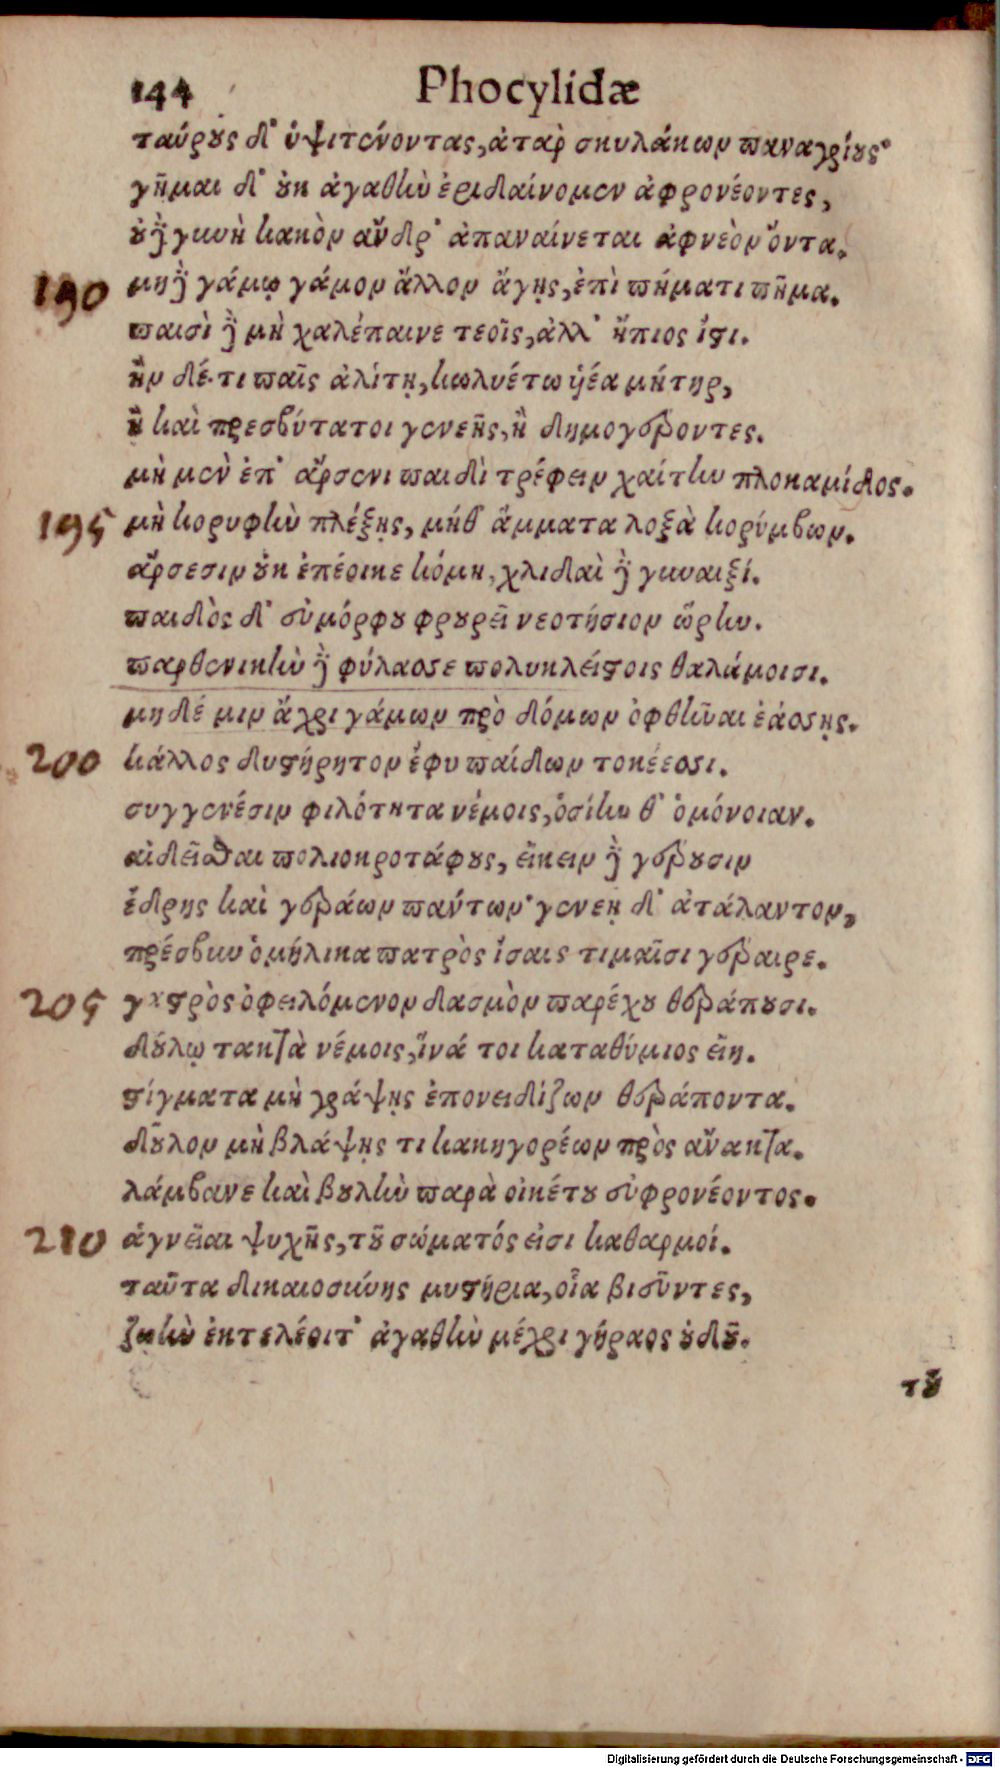 144 Phocylidæ
ταύρους δ' ὑψιτένοντας, ἀτὰρ σκυλάκων παναγρίους·
γῆμαι δ' οὐκ ἀγαθὴν ἐριδαίνομεν ἀφρονέοντες,
οὐ δὲ γυνὴ κακὸν ἄνδρ' ἀπαναίνεται ἀφνεὸν ὄντα.
190 μὴ δὲ γάμῳ γάμον ἄλλον ἄγῃς, ἐπὶ πήματι πῆμα.
παισὶ δὲ μὴ χαλέπαινε τεοῖς, ἀλλ' ἤπιος ἴσθι.
ἢν δέ τι παῖς ἀλίτῃ, κωλυέτω ὑέα μήτηρ,
ἢ καὶ πρεσβύτατοι γενεῆς, ἢ δημογέροντες.
μὴ μὲν ἐπ' ἄρσενι παιδὶ τρέφειν χαίτην πλοκαμῖδος.
195 μὴ κορυφὴν πλέξῃς, μήθ' ἅμματα λοξὰ κορύμβων.
ἄρσεσιν οὐκ ἐπέοικε κόμη, χλιδαὶ δὲ γυναιξί.
παιδὸς δ' εὐμόρφου φρουρεῖ νεοτήσιον ὥρην.
παρθενικὴν δὲ φύλασσε πολυκλείστοις θαλάμοισι.
μηδέ μιν ἄχρι γάμων πρὸ δόμων ὀφθῆναι ἐάσῃς.
200 κάλλος δυστήρητον ἔφυ παίδων τοκέεσσι.
συγγενέσιν φιλότητα νέμοις, ὁσίην θ' ὁμόνοιαν.
αἰδεῖσθαι πολιοκροτάφους, εἴκειν δὲ γέρουσιν
ἕδρης καὶ γεράων πάντων· γενεῇ δ' ἀτάλαντον,
πρέσβυν ὁμήλικα πατρὸς ἴσαις τιμαῖσι γέραιρε.
205 γαστρὸς ὀφειλόμενον δασμὸν παρέχου θεράπουσι.
δούλῳ τακτὰ νέμοις, ἵνά τοι καταθύμιος εἴη.
στίγματα μὴ γράψῃς ἐπονειδίζων θεράποντα.
δοῦλον μὴ βλάψῃς τι κακηγορέων πρὸς ἄνακτα.
λάμβανε καὶ βουλὴν παρὰ οἰκέτου εὐφρονέοντος.
210 ἁγνεῖαι ψυχῆς, τοῦ σώματός εἰσι καθαρμοί.
ταῦτα δικαιοσύνης μυστήρια, οἷα βιεῦντες,
ζωὴν ἐκτελέοιτ' ἀγαθὴν μέχρι γήραος οὐδοῦ.
τοῦ
Digitalisierung gefördert durch die Deutsche Forschungsgemeinschaft - DFG